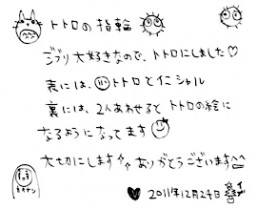 トトロの指輪
ジブリ大好きなので、トトロにしました♡
表には、トトロとイニシャル
裏には、2人あわせると トトロの絵に
なるようになってます
大切にします ありがとうございます^^
2011年12月24日